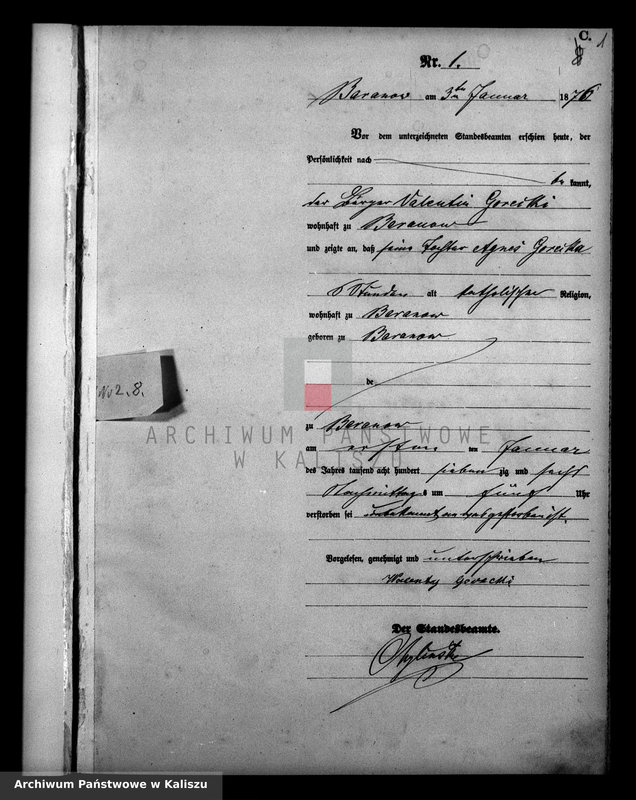 C.
1
8
Nr. 1.
Baranow am 3ten Januar 1876
Vor dem unterzeichneten Standesbeamten erschien heute, der
Persönlichkeit nach
be kannt,
der Bürger Valentin Gorecki
wohnhaft zu Baranow
und zeigte an, daß seine Tochter Agnes Gorecka
6 Stunden alt katholischer Religion,
wohnhaft zu Baranow
geboren zu Baranow
de
zu Baranow
am ersten ten Januar
des Jahres tausend acht hundert sieben zig und sechs
Nachmittags um fünf Uhr
verstorben sei
Vorgelesen, genehmigt und unterschrieben
Walenty Gorecki
Der Standesbeamte.
No 2. 8.
ARCHIWUM PAŃSTWOWE
W KALISZU
Archiwum Państwowe w Kaliszu